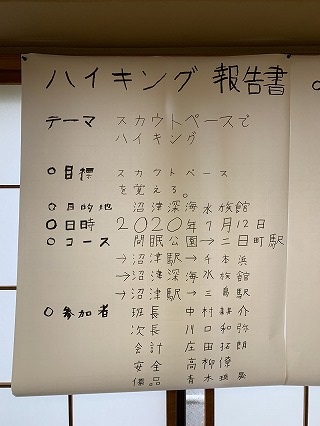 ハイキング 報告書
テーマ スカウトペースで
ハイキング
○目標 スカウトペース
を覚える。
○目的地 沼津深海水族館
○日時 2020年7月12日
○コース 間眠公園→二日町駅
→沼津駅→千本浜
→沼津深海水族館
→沼津駅→三島駅
○参加者 班長 中村耕介
次長 川口和弥
会計 庄田拓朗
安全 高柳僚
備品 青木